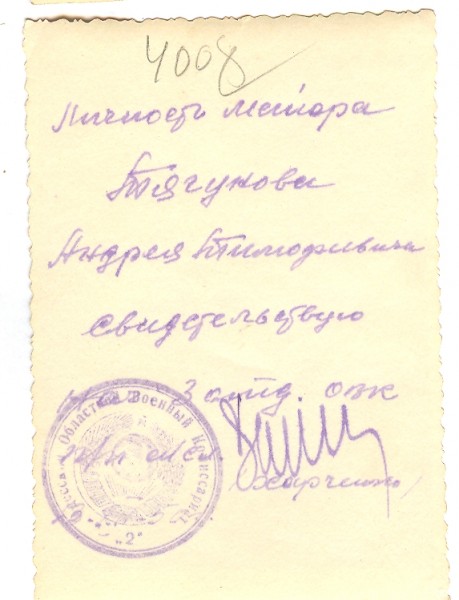 4008
Личность майора
Тягунова
Андрея Тимофивича
свидетельствую
3 отд. овк
Харченко
Областной Военный Комиссариат
"2"